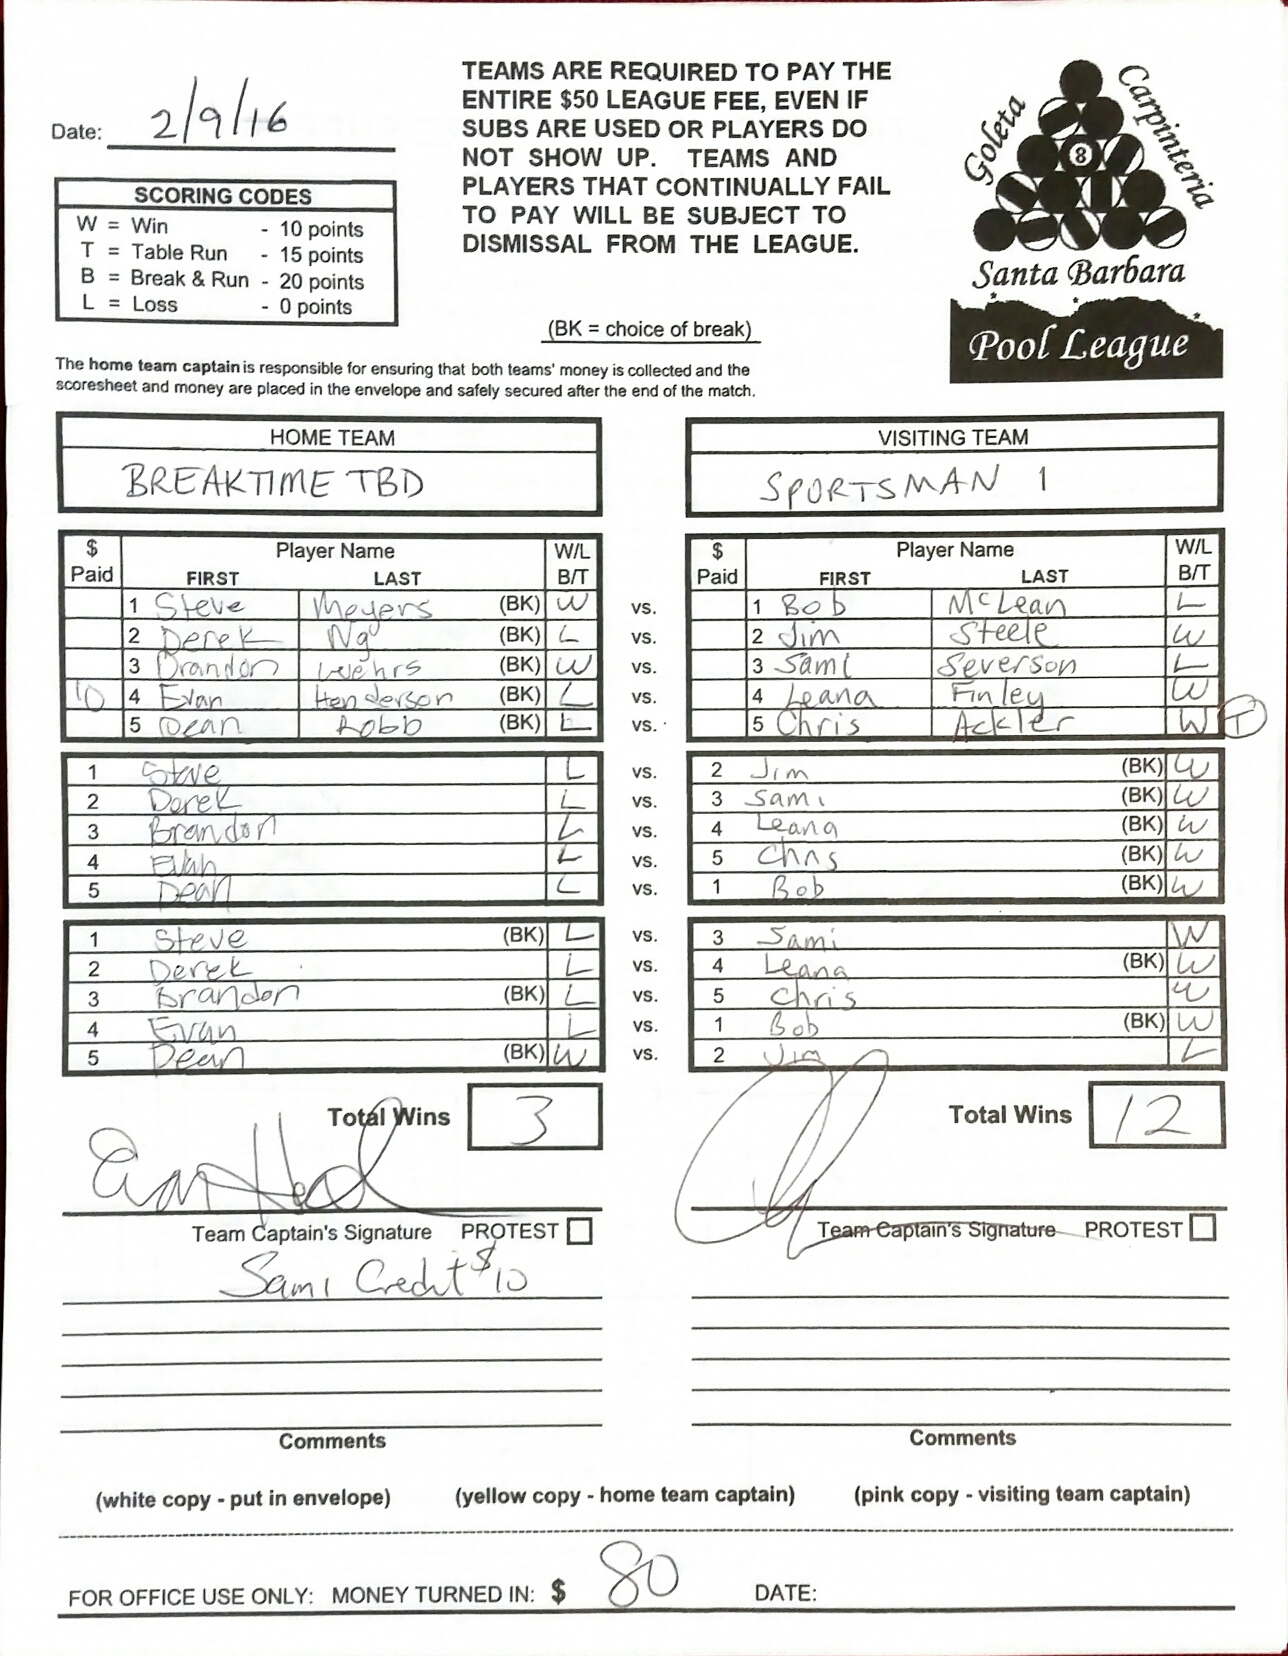 Date: 2/9/16
SCORING CODES
W = Win - 10 points
T = Table Run - 15 points
B = Break & Run - 20 points
L = Loss - 0 points
TEAMS ARE REQUIRED TO PAY THE
ENTIRE $50 LEAGUE FEE, EVEN IF
SUBS ARE USED OR PLAYERS DO
NOT SHOW UP. TEAMS AND
PLAYERS THAT CONTINUALLY FAIL
TO PAY WILL BE SUBJECT TO
DISMISSAL FROM THE LEAGUE.
(BK = choice of break)
Goleta
Carpinteria
8
Santa Barbara
Pool League
The home team captain is responsible for ensuring that both teams' money is collected and the
scoresheet and money are placed in the envelope and safely secured after the end of the match.
HOME TEAM VISITING TEAM
BREAKTIME TBD SPORTSMAN 1
$ Paid Player Name FIRST LAST W/L B/T $ Paid Player Name FIRST LAST W/L B/T
1 Steve Meyers (BK) W vs. 1 Bob McLean L
2 Derek Ng (BK) L vs. 2 Jim Steele W
3 Brandon Wehrs (BK) W vs. 3 Sami Severson L
10 4 Evan Henderson (BK) L vs. 4 Leana Finley W
5 Dean Robb (BK) L vs. 5 Chris Ackler W T
1 Steve L vs. 2 Jim (BK) W
2 Derek L vs. 3 Sami (BK) W
3 Brandon L vs. 4 Leana (BK) W
4 Evan L vs. 5 Chris (BK) W
5 Dean L vs. 1 Bob (BK) W
1 Steve (BK) L vs. 3 Sami W
2 Derek L vs. 4 Leana (BK) W
3 Brandon (BK) L vs. 5 Chris W
4 Evan L vs. 1 Bob (BK) W
5 Dean (BK) W vs. 2 Jim L
Total Wins 3 Total Wins 12
Team Captain's Signature PROTEST Team Captain's Signature PROTEST
Sami Credit $10
Comments Comments
(white copy - put in envelope) (yellow copy - home team captain) (pink copy - visiting team captain)
FOR OFFICE USE ONLY: MONEY TURNED IN: $ 80 DATE: